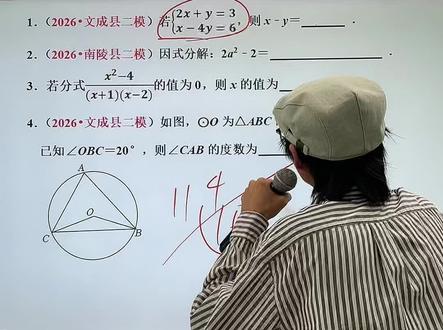 1.（2026•文成县二模）若{2x + y = 3
x - 4y = 6，则 x - y = ．
2.（2026•南陵县二模）因式分解：2a² - 2 =
3. 若分式 x²−4/(x+1)(x−2) 的值为 0，则 x 的值为
4.（2026•文成县二模）如图，⊙O 为△ABC
已知∠OBC=20°，则∠CAB 的度数为
A
O
C
B
11
4